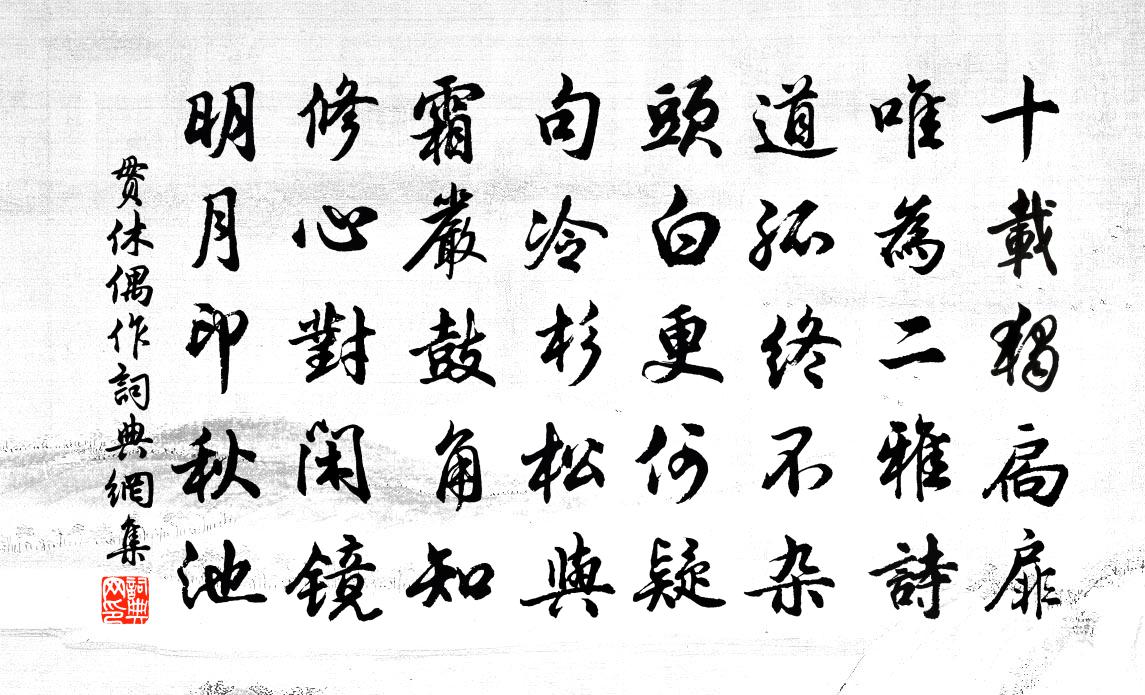 十載獨扃扉
唯為二雅詩
道孤終不杂
頭白更何疑
句冷杉松與
霜嚴鼓角知
修心對閑鏡
明月印秋池
貫休偶作詞典網集
詞典网印